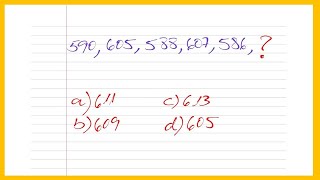 590, 605, 588, 607, 586, ?
a) 611 c) 613
b) 609 d) 605